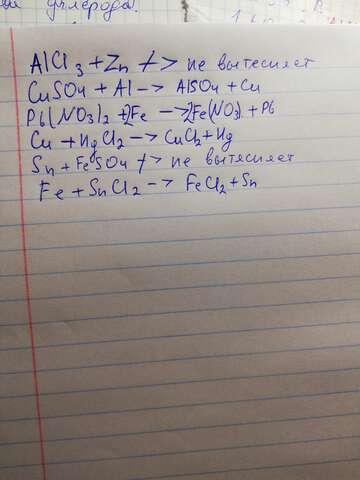 углерода.
AlCl3 + Zn -/-> не вытесняет
CuSO4 + Al -> AlSO4 + Cu
Pb(NO3)2 + 2Fe -> 2Fe(NO3) + Pb
Cu + HgCl2 -> CuCl2 + Hg
Sn + FeSO4 -/-> не вытесняет
Fe + SnCl2 -> FeCl2 + Sn